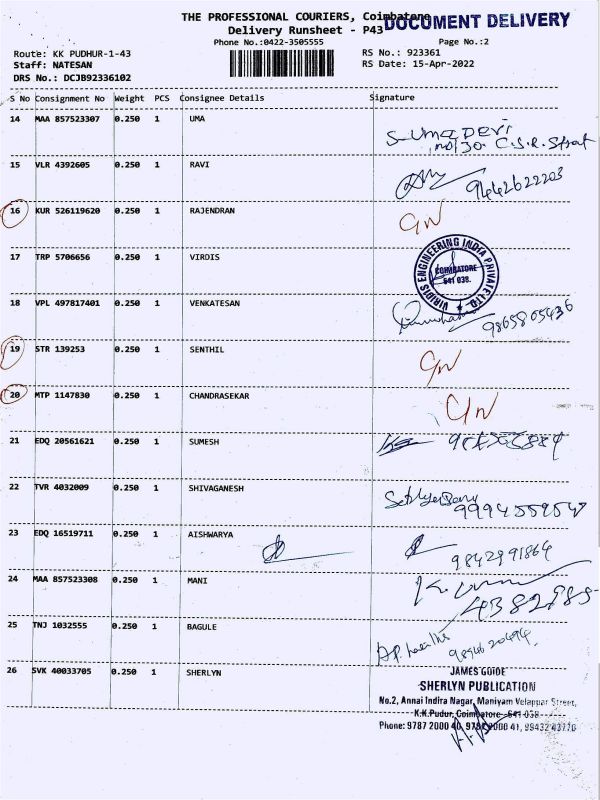 THE PROFESSIONAL COURIERS, Coimbatore
DOCUMENT DELIVERY
Delivery Runsheet - P43
Phone No.:0422-3505555
Page No.:2
Route: KK PUDHUR-1-43
RS No.: 923361
Staff: NATESAN
RS Date: 15-Apr-2022
DRS No.: DCJB92336102
S No Consignment No Weight PCS Consignee Details Signature
14 MAA 857523307 0.250 1 UMA
S-UMADEVI
no/30. C.S.R. Street
15 VLR 4392605 0.250 1 RAVI
9442622203
16 KUR 526119620 0.250 1 RAJENDRAN
17 TRP 5706656 0.250 1 VIRDIS
VIRIDIS ENGINEERING INDIA PRIVATE LTD.
COIMBATORE
641 038.
18 VPL 497817401 0.250 1 VENKATESAN
9865805436
19 STR 139253 0.250 1 SENTHIL
20 MTP 1147830 0.250 1 CHANDRASEKAR
21 EDQ 20561621 0.250 1 SUMESH
22 TVR 4032009 0.250 1 SHIVAGANESH
9994559547
23 EDQ 16519711 0.250 1 AISHWARYA
9842991864
24 MAA 857523308 0.250 1 MANI
25 TNJ 1032555 0.250 1 BAGULE
9894620494
26 SVK 40033705 0.250 1 SHERLYN
JAMES GUIDE
SHERLYN PUBLICATION
No.2, Annai Indira Nagar, Maniyam Velappar Street,
K.K.Pudur, Coimbatore- 641 038
Phone: 9787 2000 40, 9787 2000 41, 99432 43770